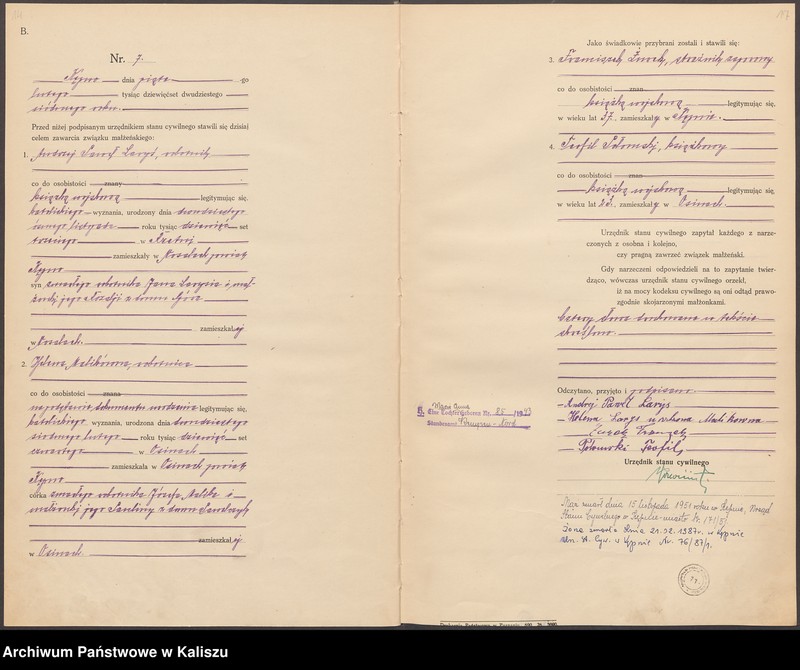 B.
Nr. 7.
Kępno dnia piąte go
lutego tysiąc dziewięćset dwudziestego
siódmego roku.
Przed niżej podpisanym urzędnikiem stanu cywilnego stawili się dzisiaj
celem zawarcia związku małżeńskiego:
1. Andrzej Paweł Laryś, robotnik
co do osobistości znany
książką wojskową legitymując się,
katolickiego wyznania, urodzony dnia dwudziestego
ósmego listopada roku tysiąc dziewięć set
trzeciego w
zamieszkały w powiat
Kępno
syn zmarłego robotnika Jana Larysia i mał-
żonki jego z domu
zamieszkałej
w
2. Helena Malikówna, robotnica
co do osobistości znana
na podstawie dokumentu urodzenia legitymując się,
katolickiego wyznania, urodzona dnia dwudziestego
siódmego lutego roku tysiąc dziewięć set
czwartego w Osinach
zamieszkała w Osinach powiat
Kępno
córka zmarłego robotnika Józefa Malika i
małżonki jego z domu
zamieszkałej
w Osinach.
147
Jako świadkowie przybrani zostali i stawili się:
3. Franciszek Żurek,
co do osobistości znan
książką wojskową legitymując się,
w wieku lat 37, zamieszkały w Kępnie.
4. Teofil
co do osobistości znan
książką wojskową legitymując się,
w wieku lat zamieszkały w Osinach.
Urzędnik stanu cywilnego zapytał każdego z narze-
czonych z osobna i kolejno,
czy pragną zawrzeć związek małżeński.
Gdy narzeczeni odpowiedzieli na to zapytanie twier-
dząco, wówczas urzędnik stanu cywilnego orzekł,
iż na mocy kodeksu cywilnego są oni odtąd prawo-
zgodnie skojarzonymi małżonkami.
Cztery słowa drukowane w tekście
skreślono.
Odczytano, przyjęto i podpisano
Andrzej Paweł Laryś
Helena Laryś urodzona Malikówna
Teofil
Urzędnik stanu cywilnego
Eine Tochter geboren Nr. 25 /1943
Standesamt
Mąż zmarł dnia 15 listopada 1951 roku w Kępnie, Urząd
Stanu Cywilnego w Kępnie-miasto Nr. 171/51
Żona zmarła dnia 21.02.1987r. w Kępnie
Urz. St. Cyw. w Kępnie Nr. 76/87/1.
Archiwum Państwowe w Kaliszu